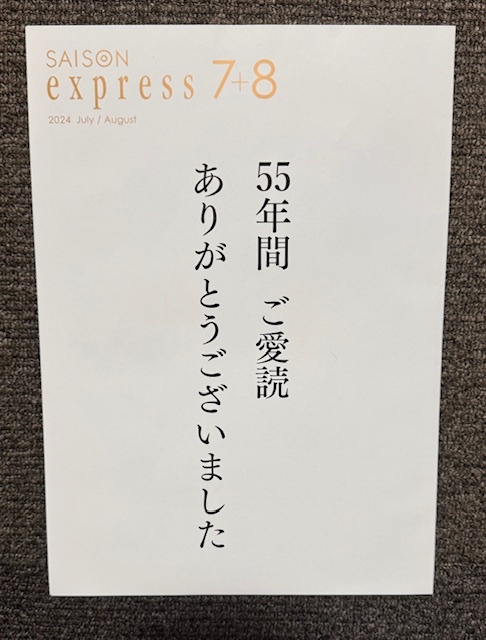 SAISON
express 7+8
2024 July / August
55年間 ご愛読
ありがとうございました